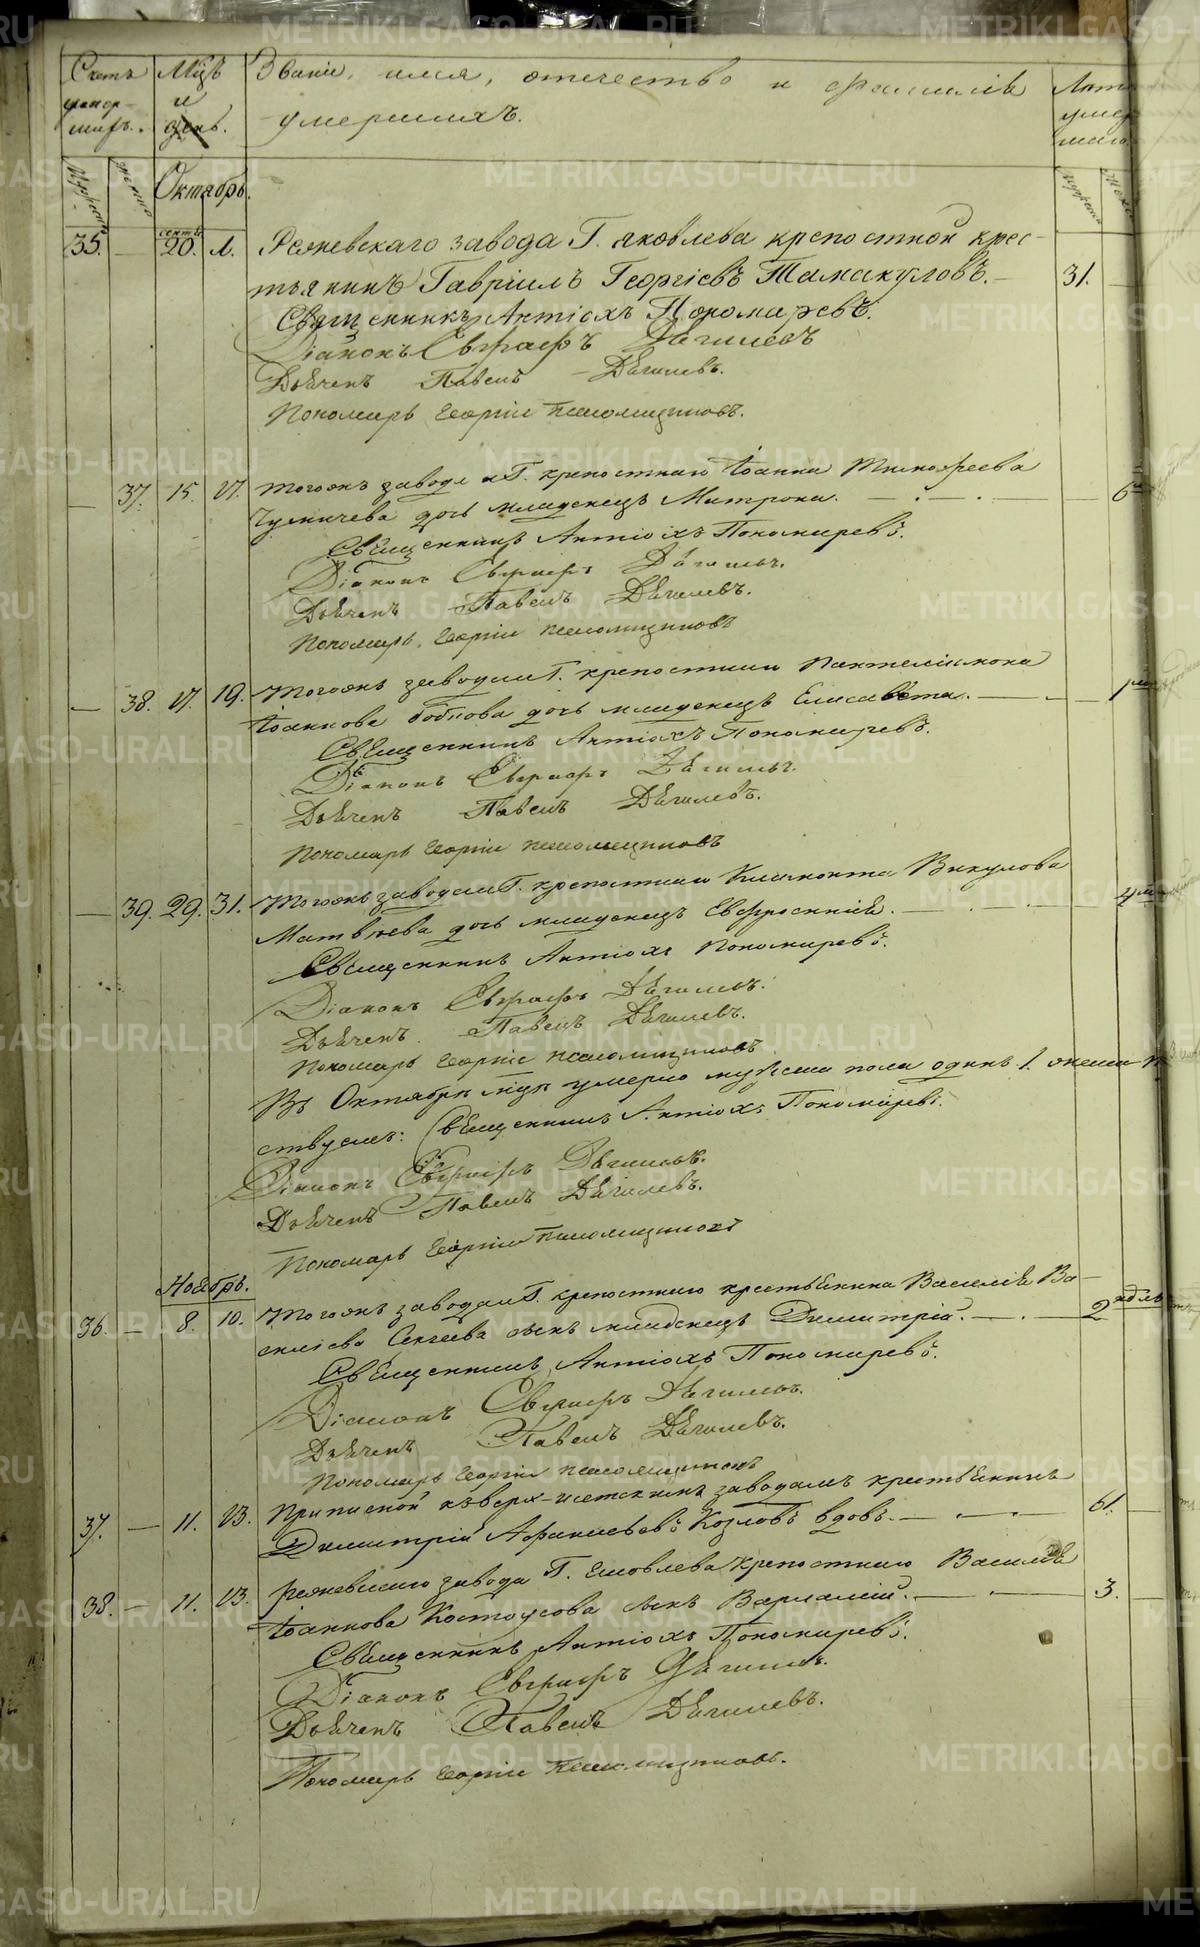 Счетъ умер-шихъ.
Мцъ и день.
Званіе, имя, отечество и фамилія
умершихъ.
Лѣт умер шаго
Мужеска женска
Октябрь.
35. — сент. 20. Л. Режевскаго завода Г. Яковлева крепостной крес-
тьянинъ Гавріилъ Георгіевъ Тамакуловъ. — 31.
Священникъ Антіохъ Пономаревъ.
Діаконъ Евграфъ Дягилевъ
Дьячекъ Павелъ Дягилевъ.
Пономарь Георгій
— 37. 15. 17. Тогожъ завода и Г. крепостнаго Іоанна Тимофеева
дочь младенецъ Матрона. — 6
Священникъ Антіохъ Пономаревъ.
Діаконъ Евграфъ Дягилевъ.
Дьячекъ Павелъ Дягилевъ.
Пономарь Георгій
— 38. 17. 19. Тогожъ завода и Г. крепостнаго Пантелеимона
Іоаннова дочь младенецъ Елисавета. — 1
Священникъ Антіохъ Пономаревъ.
Діаконъ Евграфъ Дягилевъ.
Дьячекъ Павелъ Дягилевъ.
Пономарь Георгій
— 39. 29. 31. Тогожъ завода и Г. крепостнаго Климонта Викулова
Матвѣева дочь младенецъ Евфросинія. —
Священникъ Антіохъ Пономаревъ.
Діаконъ Евграфъ Дягилевъ.
Дьячекъ Павелъ Дягилевъ.
Пономарь Георгій
Въ Октябрѣ мцѣ умерло мужеска пола одинъ 1. женска
Священникъ Антіохъ Пономаревъ.
Діаконъ Евграфъ Дягилевъ.
Дьячекъ Павелъ Дягилевъ.
Пономарь Георгій
Ноябрь.
36. — 8. 10. Тогожъ завода и Г. крепостнаго крестьянина Василія Ва-
силіева сынъ младенецъ Димитрій. — 2 ндл
Священникъ Антіохъ Пономаревъ.
Діаконъ Евграфъ Дягилевъ.
Дьячекъ Павелъ Дягилевъ.
Пономарь Георгій
37. — 11. 13. Приписной къ верх-исетскимъ заводамъ крестьянинъ
Димитрій Афанасьевъ Козловъ вдовъ. — 61.
38. — 11. 13. Режевскаго завода Г. Яковлева крепостнаго Василія
Іоаннова Костоусова сынъ Варламій. — 3.
Священникъ Антіохъ Пономаревъ.
Діаконъ Евграфъ Дягилевъ.
Дьячекъ Павелъ Дягилевъ.
Пономарь Георгій
METRIKI.GASO-URAL.RU